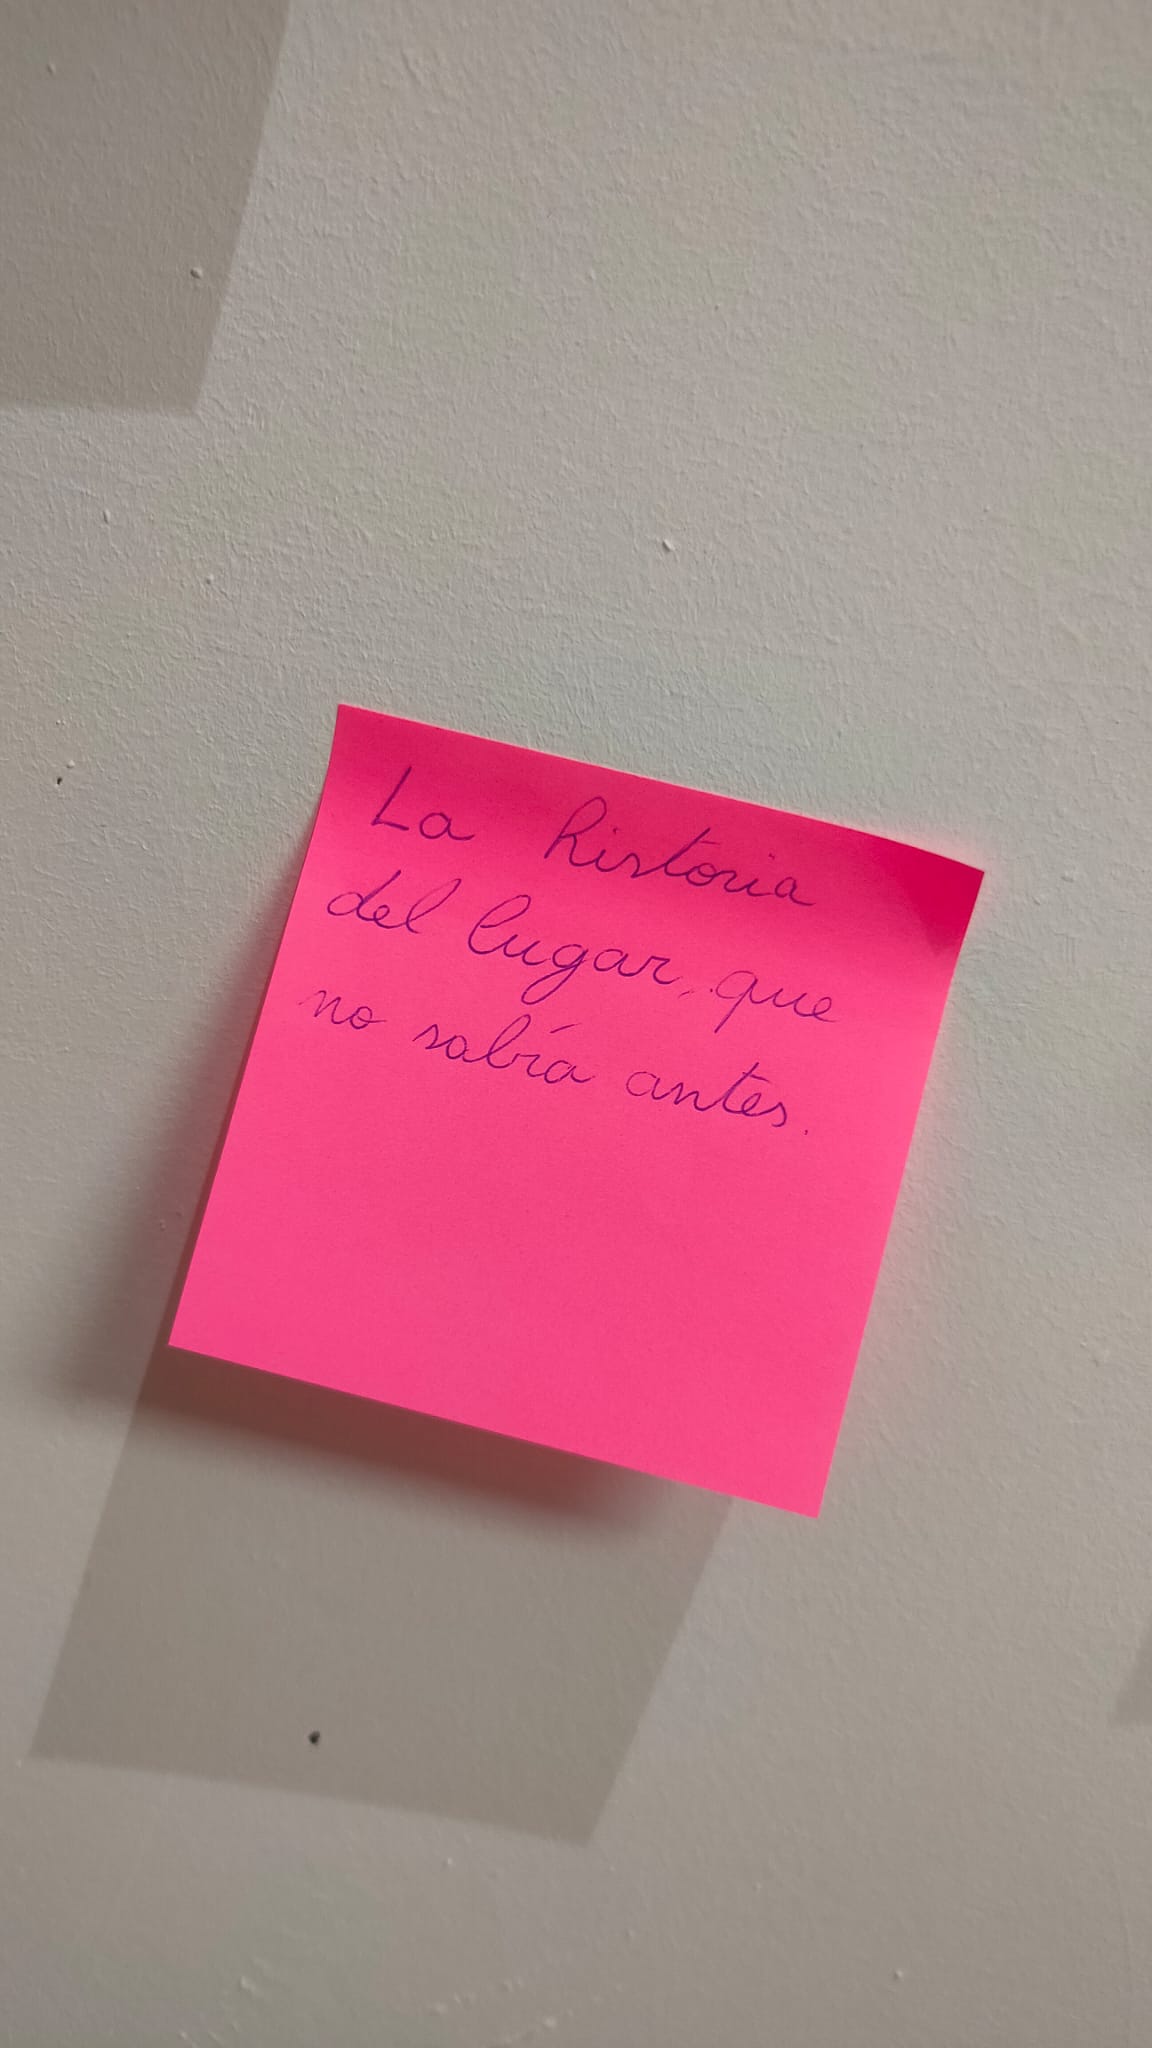 La historia
del lugar, que
no sabía antes.